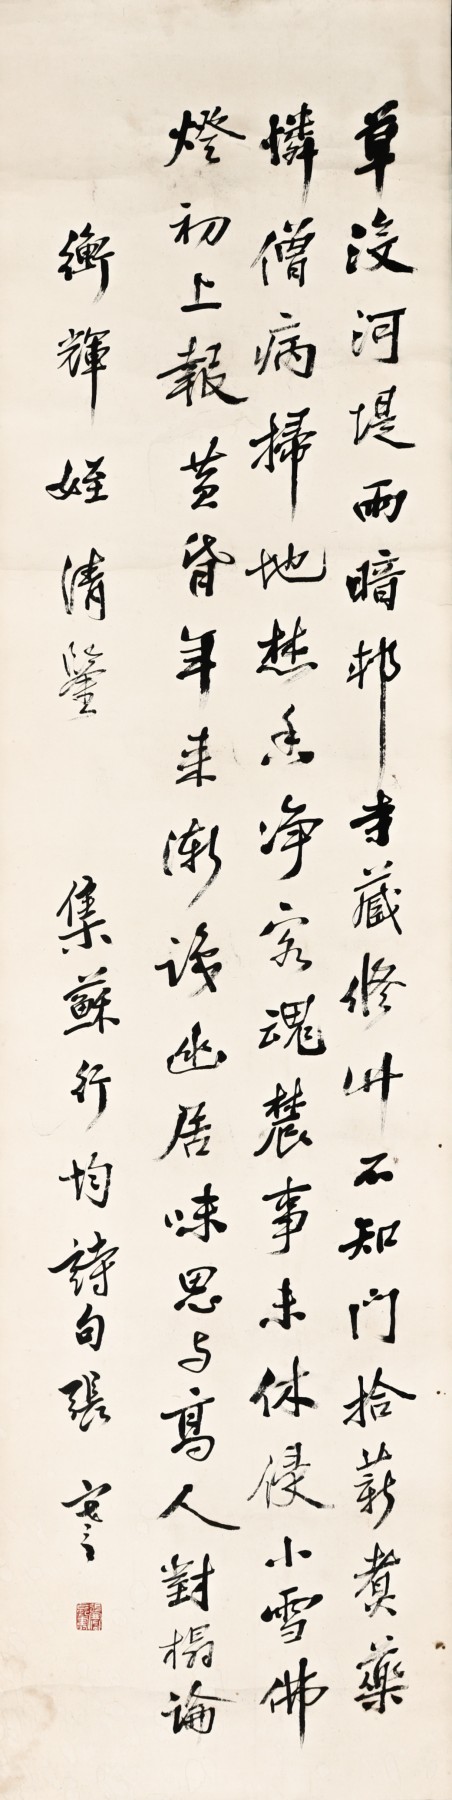 草沒河堤雨暗邨寺藏修竹不知門拾薪煑藥
憐僧病掃地焚香净客魂農事未休侵小雪佛
燈初上報黃昏年来漸識幽居味思与高人對榻論
衡輝姪清鑒
集蘇行均詩句張謇